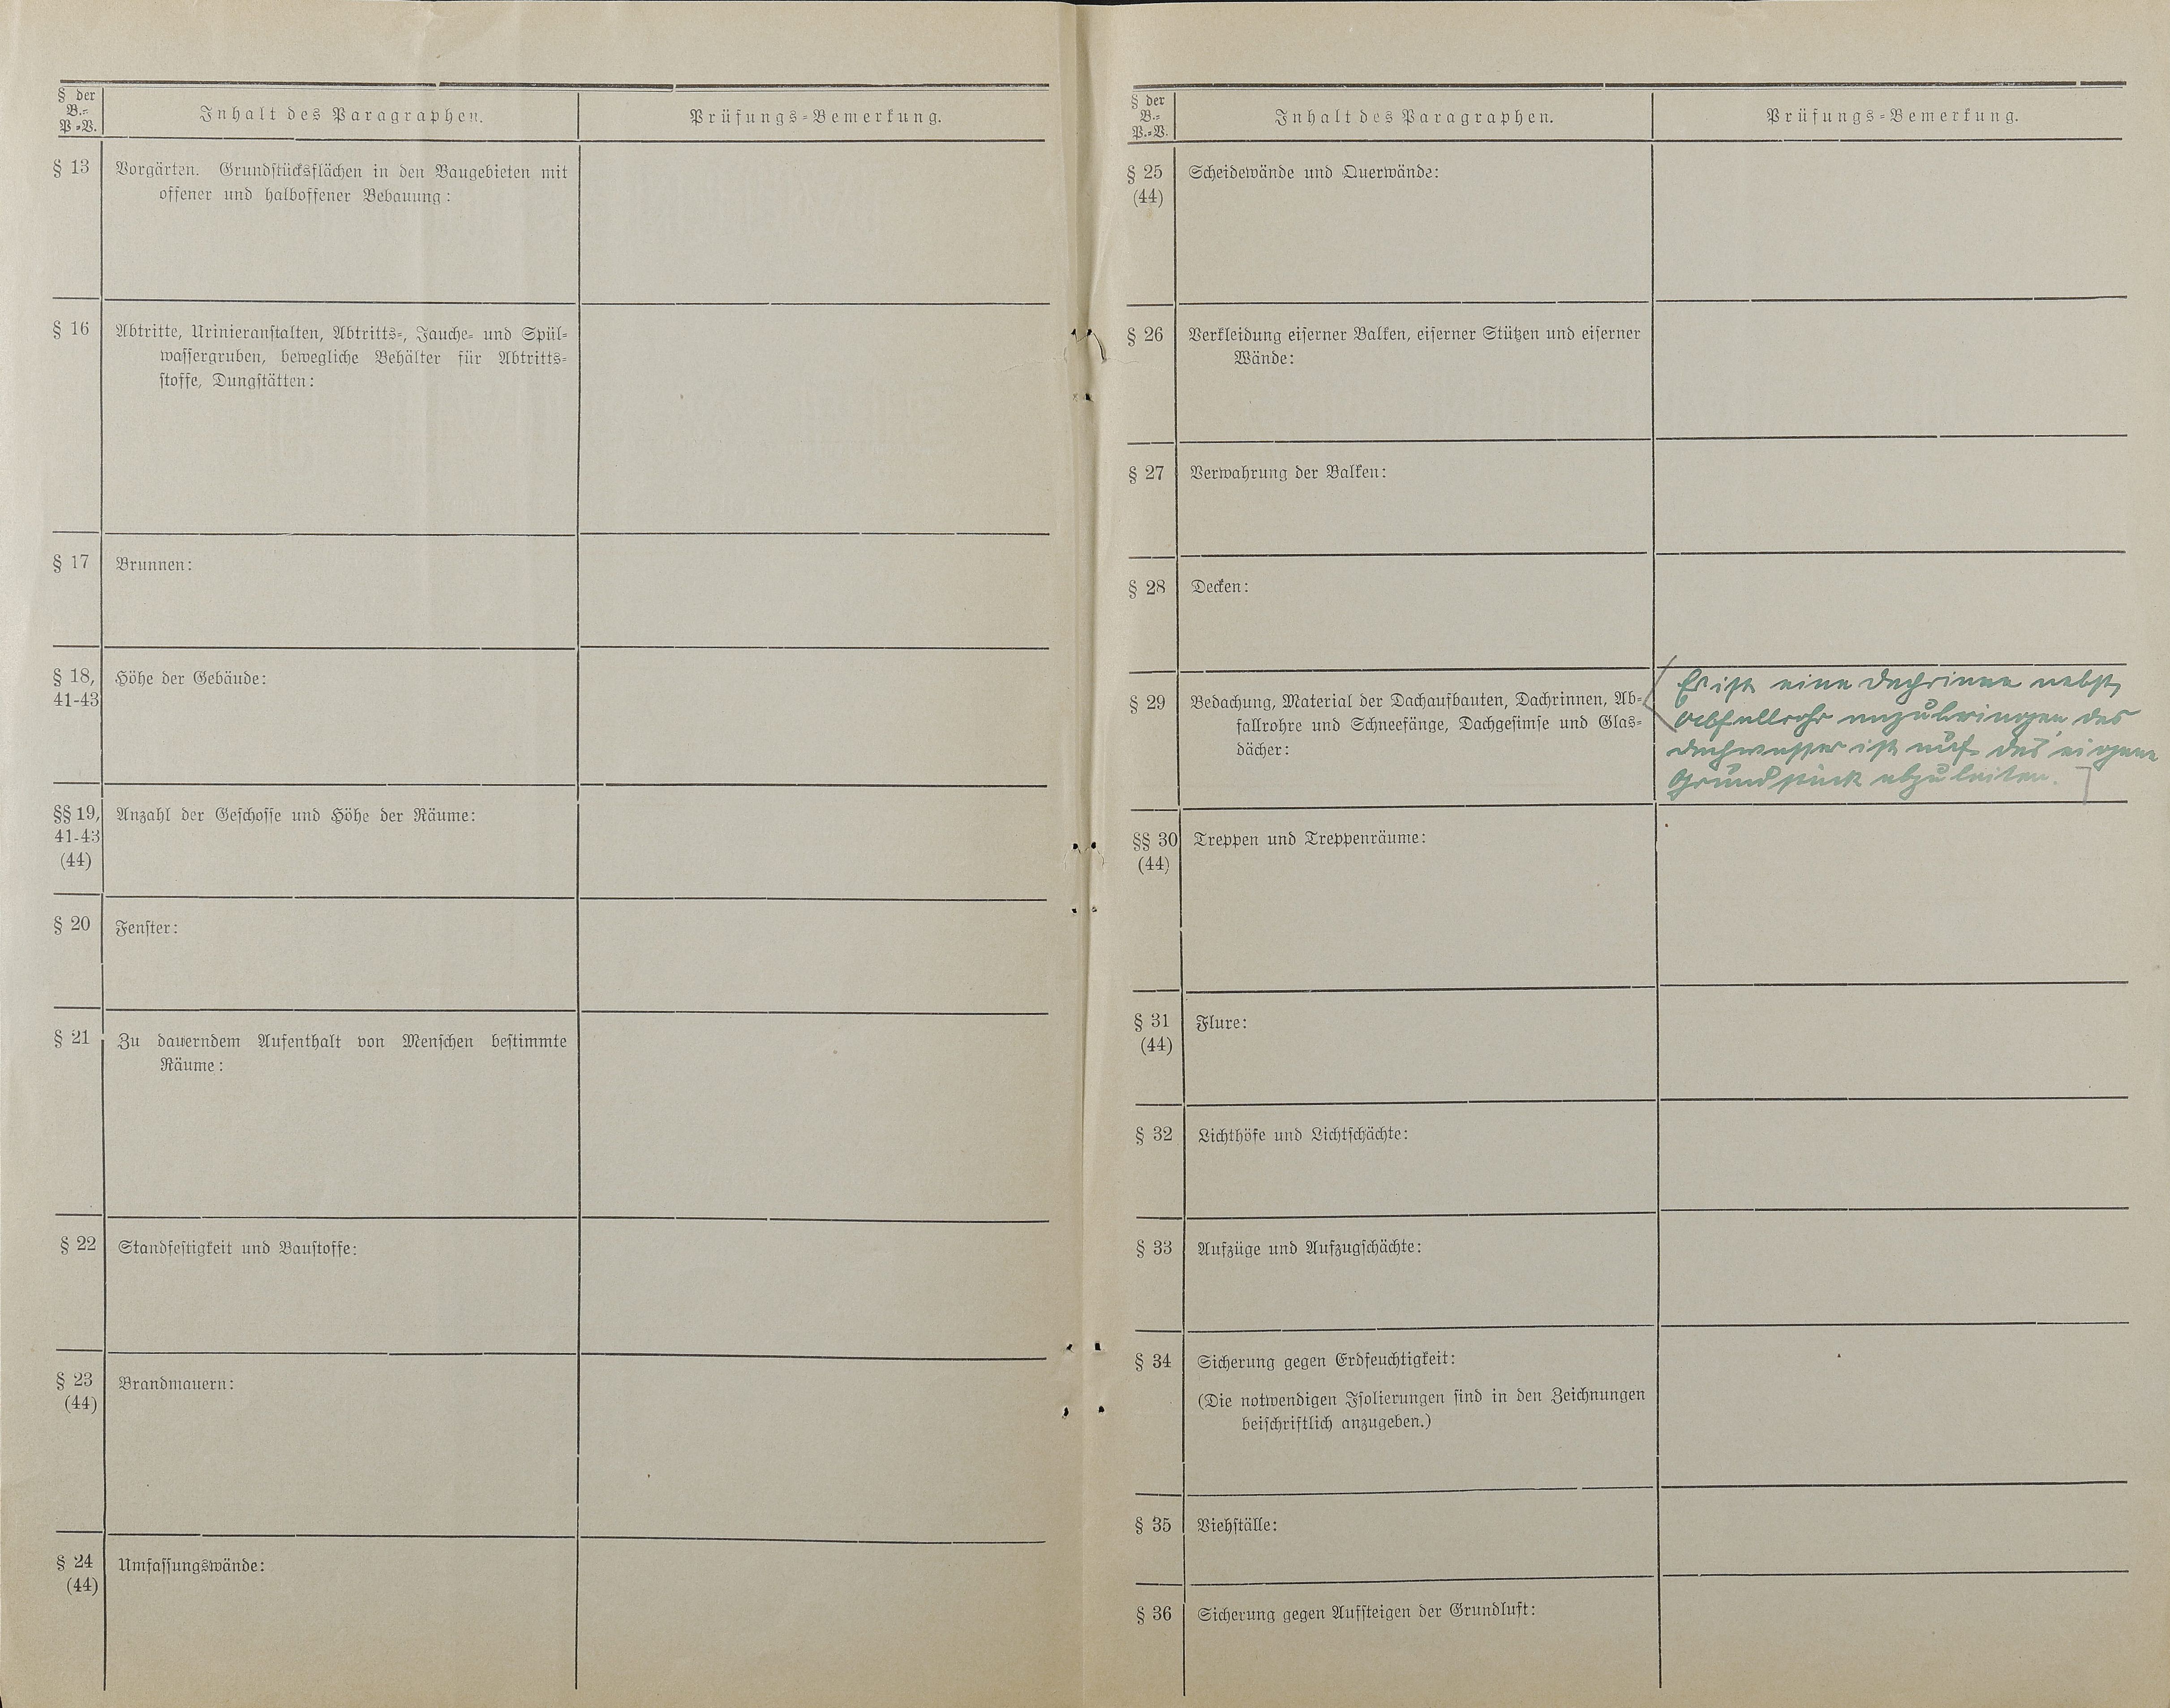 § der
B.-
P.-V.
Inhalt des Paragraphen.
Prüfungs-Bemerkung.
§ 13
Vorgärten. Grundstücksflächen in den Baugebieten mit
offener und halboffener Bebauung:
§ 16
Abtritte, Urinieranstalten, Abtritts-, Jauche- und Spül-
wassergruben, bewegliche Behälter für Abtritts-
stoffe, Dungstätten:
§ 17
Brunnen:
§ 18,
41-43
Höhe der Gebäude:
§§ 19,
41-43
(44)
Anzahl der Geschosse und Höhe der Räume:
§ 20
Fenster:
§ 21
Zu dauerndem Aufenthalt von Menschen bestimmte
Räume:
§ 22
Standfestigkeit und Baustoffe:
§ 23
(44)
Brandmauern:
§ 24
(44)
Umfassungswände:
§ der
B.-
P.-V.
Inhalt des Paragraphen.
Prüfungs-Bemerkung.
§ 25
(44)
Scheidewände und Querwände:
§ 26
Verkleidung eiserner Balken, eiserner Stützen und eiserner
Wände:
§ 27
Verwahrung der Balken:
§ 28
Decken:
§ 29
Bedachung, Material der Dachaufbauten, Dachrinnen, Ab-
fallrohre und Schneefänge, Dachgesimse und Glas-
dächer:
Es ist eine Dachrinne nebst
Abfallrohr anzubringen, das
Dachwasser ist auf das eigene
Grundstück abzuleiten.
§§ 30
(44)
Treppen und Treppenräume:
§ 31
(44)
Flure:
§ 32
Lichthöfe und Lichtschächte:
§ 33
Aufzüge und Aufzugschächte:
§ 34
Sicherung gegen Erdfeuchtigkeit:
(Die notwendigen Isolierungen sind in den Zeichnungen
beischriftlich anzugeben.)
§ 35
Viehställe:
§ 36
Sicherung gegen Aufsteigen der Grundluft: